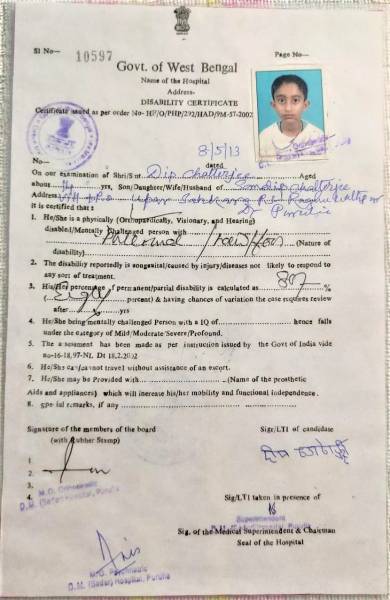 Sl No— 10597
Page No—
Govt. of West Bengal
Name of the Hospital
Address-
DISABILITY CERTIFICATE
Certificate issued as per order No- HF/O/PHP/292/HAD/9M-57-2002
8/5/13
No— dated
On our examination of Shri/Smt Dip Chatterjee Aged
about yrs, Son/Daughter/Wife/Husband of Sandip Chatterjee
Address Vill + P.O Upar
It is certified that :
1. He/She is a physically (Orthopaedically, Visionary, and Hearing)
disabled/Mentally Challenged person with (Nature of
disability)
2. The disability reportedly is congenital/caused by injury/diseases not likely to respond to
any sort of treatment.
3. His/Her percentage of permanent/partial disability is calculated as 80% %
(Eighty percent) & having chances of variation the case requires review
after yrs
4. He/She being mentally challenged Person with a IQ of hence falls
under the category of Mild/Moderate/Severe/Profound.
5. The assessment has been made as per instruction issued by the Govt of India vide
no-16-18,97-NI. Dt 18.2.2002
6. He/She can(cannot travel) without assistance of an escort.
7. He/She may be Provided with (Name of the prosthetic
Aids and appliances) which will increase his/her mobility and functional independence.
8. special remarks, if any
Signature of the members of the board
(with Rubber Stamp)
Sign/LTI of candidate
1.
2.
3.
M.O. Orthopaedic
D.M. (Sadar) Hospital, Purulia
4.
Sig/LTI taken in presence of
Superintendent
Sig. of the Medical Superintendent & Chairman
Seal of the Hospital
M.O. Psychiatric
D.M. (Sadar) Hospital, Purulia